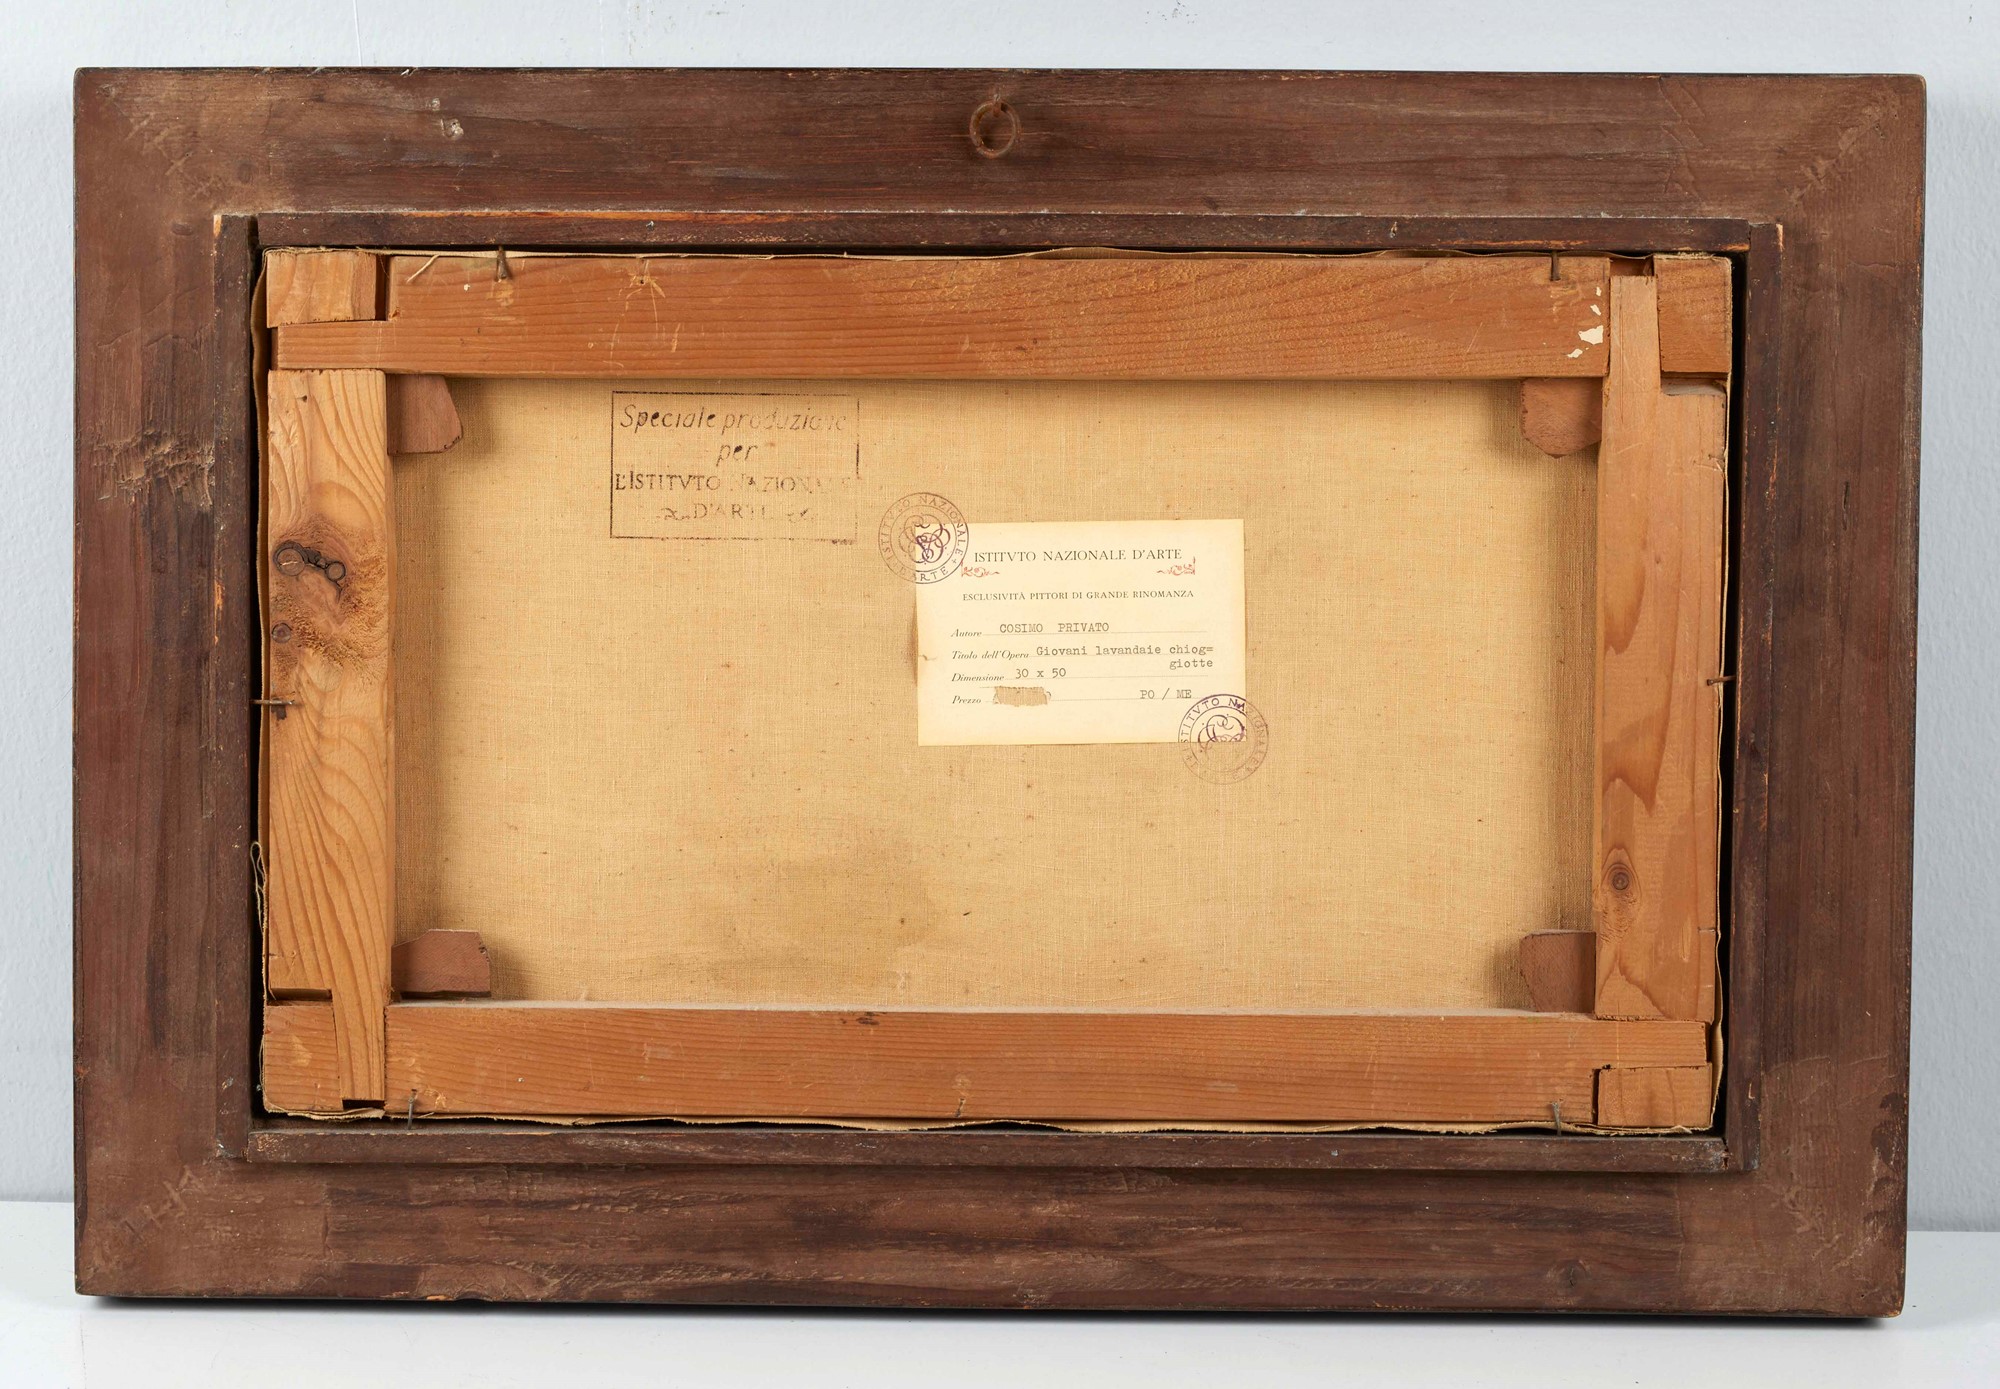 Speciale produzione
per
L'ISTITVTO NAZIONALE
D'ARTE
ISTITVTO NAZIONALE D'ARTE
ISTITVTO NAZIONALE D'ARTE
ESCLUSIVITÀ PITTORI DI GRANDE RINOMANZA
Autore COSIMO PRIVATO
Titolo dell'Opera Giovani lavandaie chiog=
giotte
Dimensione 30 x 50
Prezzo PO / ME
ISTITVTO NAZIONALE